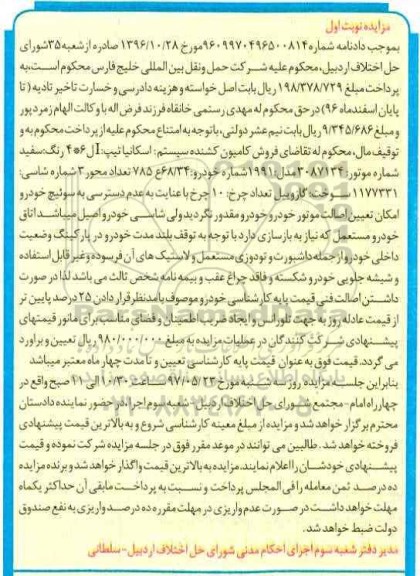 مزایده نوبت اول
بموجب دادنامه شماره ۹۶۰۹۹۷۰۴۹۶۵۰۰۸۱۴ مورخ ۱۳۹۶/۱۰/۲۸ صادره از شعبه ۳۵ شورای
حل اختلاف اردبیل، محکوم علیه شرکت حمل و نقل بین المللی خلیج فارس محکوم است، به
پرداخت مبلغ ۱۹۸/۳۷۸/۷۲۹ ریال بابت اصل خواسته و هزینه دادرسی و خسارت تاخیر تادیه (تا
پایان اسفندماه ۹۶) در حق محکوم له مهدی رستمی خانقاه فرزند فرض اله با وکالت الهام زمرد پور
و مبلغ ۹/۳۴۵/۶۸۶ ریال بابت نیم عشر دولتی، با توجه به امتناع محکوم علیه از پرداخت محکوم به و
توقیف مال، محکوم له تقاضای فروش کامیون کشنده سیستم: اسکانیا تیپ: ال ۴*۶ رنگ: سفید
شماره موتور: ۳۰۸۷۱۳۴ مدل: ۱۹۹۱ شماره خودرو: ۶۸/۳۴ع ۷۸۵ تعداد محور ۳ شماره شاسی:
۱۱۷۷۳۳۱ سوخت: گازوییل تعداد چرخ: ۱۰ چرخ با عنایت به عدم دسترسی به سوئیچ خودرو
امکان تعیین اصالت موتور خودرو مقدور نگردید ولی شاسی خودرو اصیل میباشد اتاق
خودرو مستعمل که نیاز به بازسازی دارد با توجه به توقف بلند مدت خودرو در پارکینگ وضعیت
داخلی خودرو از جمله داشبورت و تودوزی مستعمل و لاستیک های آن فرسوده وغیر قابل استفاده
و شیشه جلویی خودرو شکسته و فاقد چراغ عقب و بیمه نامه شخص ثالث می باشد لذا در صورت
داشتن اصالت فنی قیمت پایه کارشناسی خودرو موصوف با مدنظر قرار دادن ۲۵ درصد پایین تر
از قیمت عادله روز به جهت تلورانس و ایجاد ضریب اطمینان و فضای مناسب برای مانور قیمتهای
پیشنهادی شرکت کنندگان در عملیات مزایده به مبلغ ۹۸۰/۰۰۰/۰۰۰ ریال تعیین و برآورد
می گردد. قیمت فوق به عنوان قیمت پایه کارشناسی تعیین و تا مدت چهار ماه معتبر میباشد
بنابراین جلسه مزایده روز سه شنبه مورخ ۹۷/۰۵/۲۳ ساعت ۱۰/۳۰ الی ۱۱ صبح واقع در
چهارراه امام - مجتمع شورای حل اختلاف اردبیل - شعبه سوم اجرا با حضور نماینده دادستان
محترم برگزار خواهد شد و مزایده از مبلغ معینه کارشناسی شروع و به بالاترین قیمت پیشنهادی
فروخته خواهد شد. طالبین می توانند در موعد مقرر فوق در جلسه مزایده شرکت نموده و قیمت
پیشنهادی خودشان را اعلام نمایند. مزایده به بالاترین قیمت واگذار خواهد شد و برنده مزایده
ده درصد ثمن معامله را فی المجلس پرداخت و نسبت به پرداخت مابقی آن حداکثر یکماه
مهلت خواهد داشت در صورت عدم واریزی در مهلت مقرره ده درصد واریزی به نفع صندوق
دولت ضبط خواهد شد.
مدیر دفتر شعبه سوم اجرای احکام مدنی شورای حل اختلاف اردبیل - سلطانی